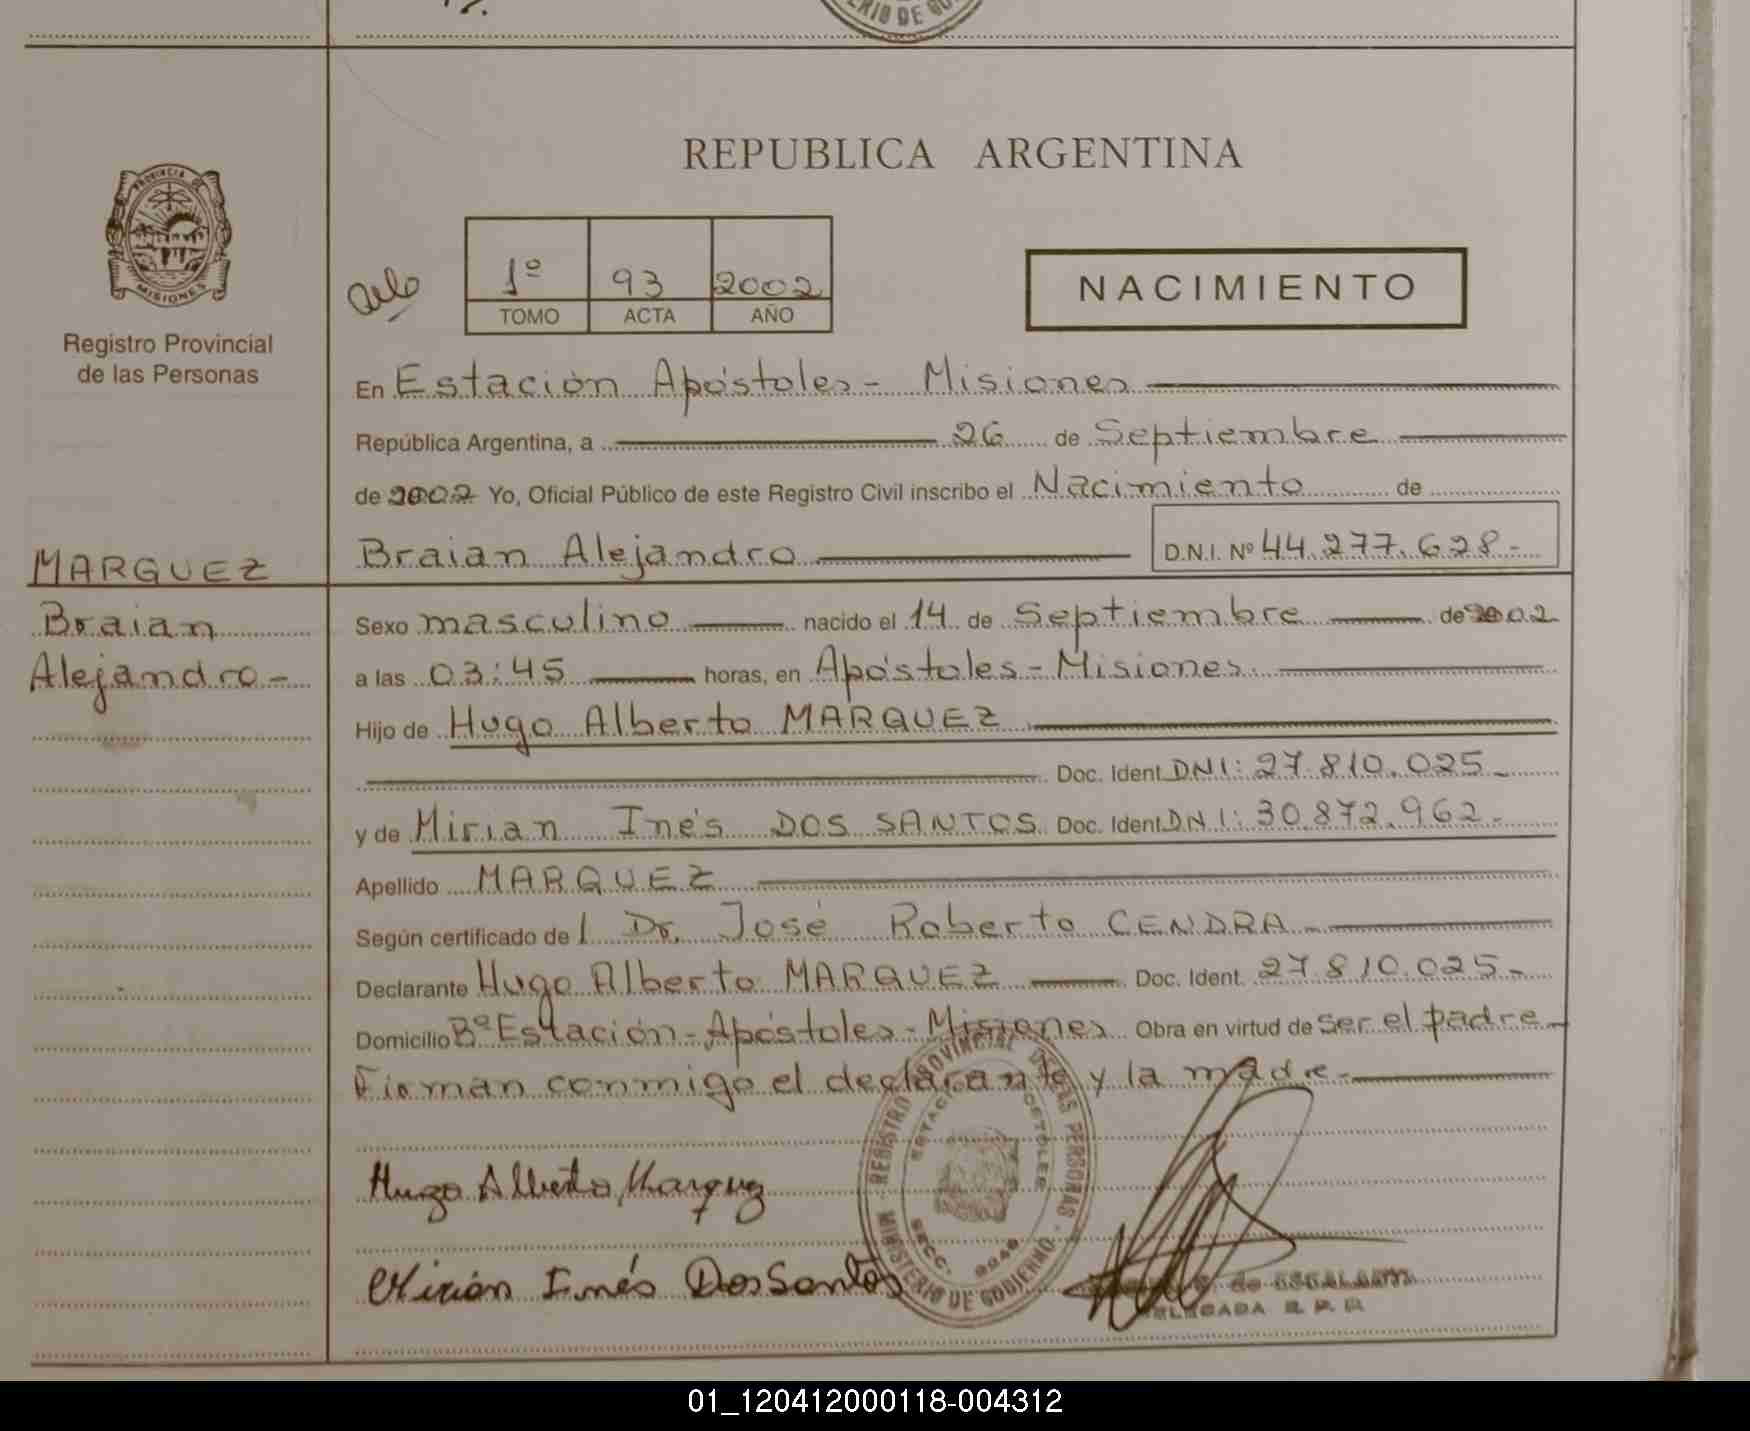 MINISTERIO DE GOBIERNO
REPUBLICA ARGENTINA
PROVINCIA DE
MISIONES
Registro Provincial
de las Personas
1º 93 2002
TOMO ACTA AÑO
NACIMIENTO
En Estación Apóstoles - Misiones
República Argentina, a 26 de Septiembre
de 2002 Yo, Oficial Público de este Registro Civil inscribo el Nacimiento de
MARQUEZ
Braian Alejandro D.N.I. Nº 44.277.628.-
Braian
Alejandro-
Sexo masculino nacido el 14 de Septiembre de 2002
a las 03:45 horas, en Apóstoles - Misiones.
Hijo de Hugo Alberto MARQUEZ
Doc. Ident. DNI: 27.810.025.-
y de Mirian Inés DOS SANTOS Doc. Ident. DNI: 30.872.962.-
Apellido MARQUEZ
Según certificado del Dr. José Roberto CENDRA.-
Declarante Hugo Alberto MARQUEZ Doc. Ident. 27.810.025.-
Domicilio Bº Estación - Apóstoles - Misiones Obra en virtud de ser el padre.-
Firman conmigo el declarante y la madre.-
REGISTRO PROVINCIAL DE LAS PERSONAS
ESTACION APOSTOLES
SECC. 0046
MINISTERIO DE GOBIERNO
Hugo Alberto Marquez
Mirian Inés Dos Santos
de ESCALADA
DELEGADA R. P. P.
01_120412000118-004312